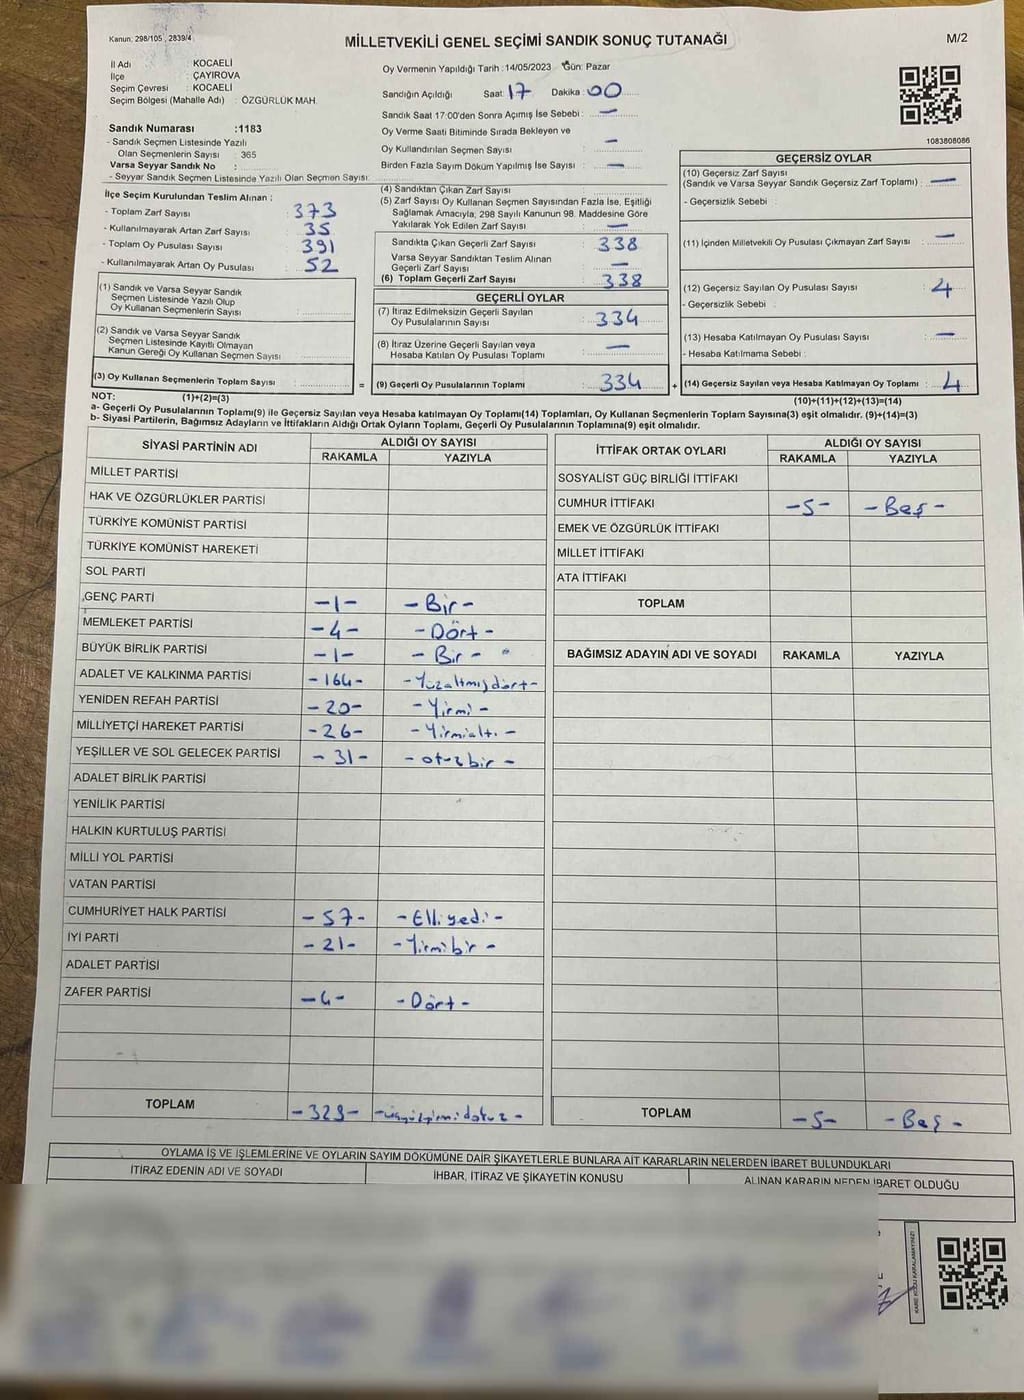 Kanun, 298/105 , 2839/4
MİLLETVEKİLİ GENEL SEÇİMİ SANDIK SONUÇ TUTANAĞI
M/2
İl Adı : KOCAELİ
İlçe : ÇAYIROVA
Seçim Çevresi : KOCAELİ
Seçim Bölgesi (Mahalle Adı) : ÖZGÜRLÜK MAH.
Sandık Numarası :1183
- Sandık Seçmen Listesinde Yazılı
Olan Seçmenlerin Sayısı : 365
Varsa Seyyar Sandık No :
- Seyyar Sandık Seçmen Listesinde Yazılı Olan Seçmen Sayısı:
Oy Vermenin Yapıldığı Tarih :14/05/2023 Gün: Pazar
Sandığın Açıldığı Saat: 17 Dakika: 00
Sandık Saat 17:00'den Sonra Açımış İse Sebebi : —
Oy Verme Saati Bitiminde Sırada Bekleyen ve
Oy Kullandırılan Seçmen Sayısı : —
Birden Fazla Sayım Döküm Yapılmış İse Sayısı : —
1083808086
İlçe Seçim Kurulundan Teslim Alınan :
- Toplam Zarf Sayısı : 373
- Kullanılmayarak Artan Zarf Sayısı : 35
- Toplam Oy Pusulası Sayısı : 391
- Kullanılmayarak Artan Oy Pusulası : 52
(1) Sandık ve Varsa Seyyar Sandık
Seçmen Listesinde Yazılı Olup
Oy Kullanan Seçmenlerin Sayısı :
(2) Sandık ve Varsa Seyyar Sandık
Seçmen Listesinde Kayıtlı Olmayan
Kanun Gereği Oy Kullanan Seçmen Sayısı :
(3) Oy Kullanan Seçmenlerin Toplam Sayısı : =
(4) Sandıktan Çıkan Zarf Sayısı :
(5) Zarf Sayısı Oy Kullanan Seçmen Sayısından Fazla İse, Eşitliği
Sağlamak Amacıyla, 298 Sayılı Kanunun 98. Maddesine Göre
Yakılarak Yok Edilen Zarf Sayısı : —
Sandıkta Çıkan Geçerli Zarf Sayısı : 338
Varsa Seyyar Sandıktan Teslim Alınan
Geçerli Zarf Sayısı : —
(6) Toplam Geçerli Zarf Sayısı : 338
GEÇERLİ OYLAR
(7) İtiraz Edilmeksizin Geçerli Sayılan
Oy Pusulalarının Sayısı : 334
(8) İtiraz Üzerine Geçerli Sayılan veya
Hesaba Katılan Oy Pusulası Toplamı : —
(9) Geçerli Oy Pusulalarının Toplamı : 334 +
GEÇERSİZ OYLAR
(10) Geçersiz Zarf Sayısı
(Sandık ve Varsa Seyyar Sandık Geçersiz Zarf Toplamı) : —
- Geçersizlik Sebebi :
(11) İçinden Milletvekili Oy Pusulası Çıkmayan Zarf Sayısı : —
(12) Geçersiz Sayılan Oy Pusulası Sayısı : 4
- Geçersizlik Sebebi :
(13) Hesaba Katılmayan Oy Pusulası Sayısı : —
- Hesaba Katılmama Sebebi :
(14) Geçersiz Sayılan veya Hesaba Katılmayan Oy Toplamı : 4
NOT: (1)+(2)=(3)
(10)+(11)+(12)+(13)=(14)
a- Geçerli Oy Pusulalarının Toplamı(9) ile Geçersiz Sayılan veya Hesaba katılmayan Oy Toplamı(14) Toplamları, Oy Kullanan Seçmenlerin Toplam Sayısına(3) eşit olmalıdır. (9)+(14)=(3)
b- Siyasi Partilerin, Bağımsız Adayların ve İttifakların Aldığı Ortak Oyların Toplamı, Geçerli Oy Pusulalarının Toplamına(9) eşit olmalıdır.
SİYASİ PARTİNİN ADI ALDIĞI OY SAYISI
RAKAMLA YAZIYLA
MİLLET PARTİSİ
HAK VE ÖZGÜRLÜKLER PARTİSİ
TÜRKİYE KOMÜNİST PARTİSİ
TÜRKİYE KOMÜNİST HAREKETİ
SOL PARTİ
GENÇ PARTİ -1- -Bir-
MEMLEKET PARTİSİ -4- -Dört-
BÜYÜK BİRLİK PARTİSİ -1- -Bir-
ADALET VE KALKINMA PARTİSİ -164- -Yüzaltmışdört-
YENİDEN REFAH PARTİSİ -20- -Yirmi-
MİLLİYETÇİ HAREKET PARTİSİ -26- -Yirmialtı-
YEŞİLLER VE SOL GELECEK PARTİSİ -31- -otuzbir-
ADALET BİRLİK PARTİSİ
YENİLİK PARTİSİ
HALKIN KURTULUŞ PARTİSİ
MİLLİ YOL PARTİSİ
VATAN PARTİSİ
CUMHURİYET HALK PARTİSİ -57- -Elliyedi-
İYİ PARTİ -21- -Yirmibir-
ADALET PARTİSİ
ZAFER PARTİSİ -4- -Dört-
TOPLAM -329- -üçyüzyirmidokuz-
İTTİFAK ORTAK OYLARI ALDIĞI OY SAYISI
RAKAMLA YAZIYLA
SOSYALİST GÜÇ BİRLİĞİ İTTİFAKI
CUMHUR İTTİFAKI -5- -Beş-
EMEK VE ÖZGÜRLÜK İTTİFAKI
MİLLET İTTİFAKI
ATA İTTİFAKI
TOPLAM
BAĞIMSIZ ADAYIN ADI VE SOYADI RAKAMLA YAZIYLA
TOPLAM -5- -Beş-
OYLAMA İŞ VE İŞLEMLERİNE VE OYLARIN SAYIM DÖKÜMÜNE DAİR ŞİKAYETLERLE BUNLARA AİT KARARLARIN NELERDEN İBARET BULUNDUKLARI
İTİRAZ EDENİN ADI VE SOYADI İHBAR, İTİRAZ VE ŞİKAYETİN KONUSU ALINAN KARARIN NEDEN İBARET OLDUĞU
KARE KODU KARALAMAYINIZ!